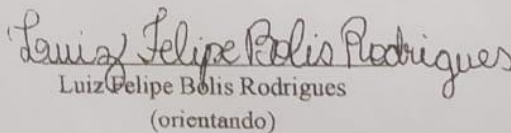 Luiz Felipe Bolis Rodrigues
Luiz Felipe Bolis Rodrigues
(orientando)